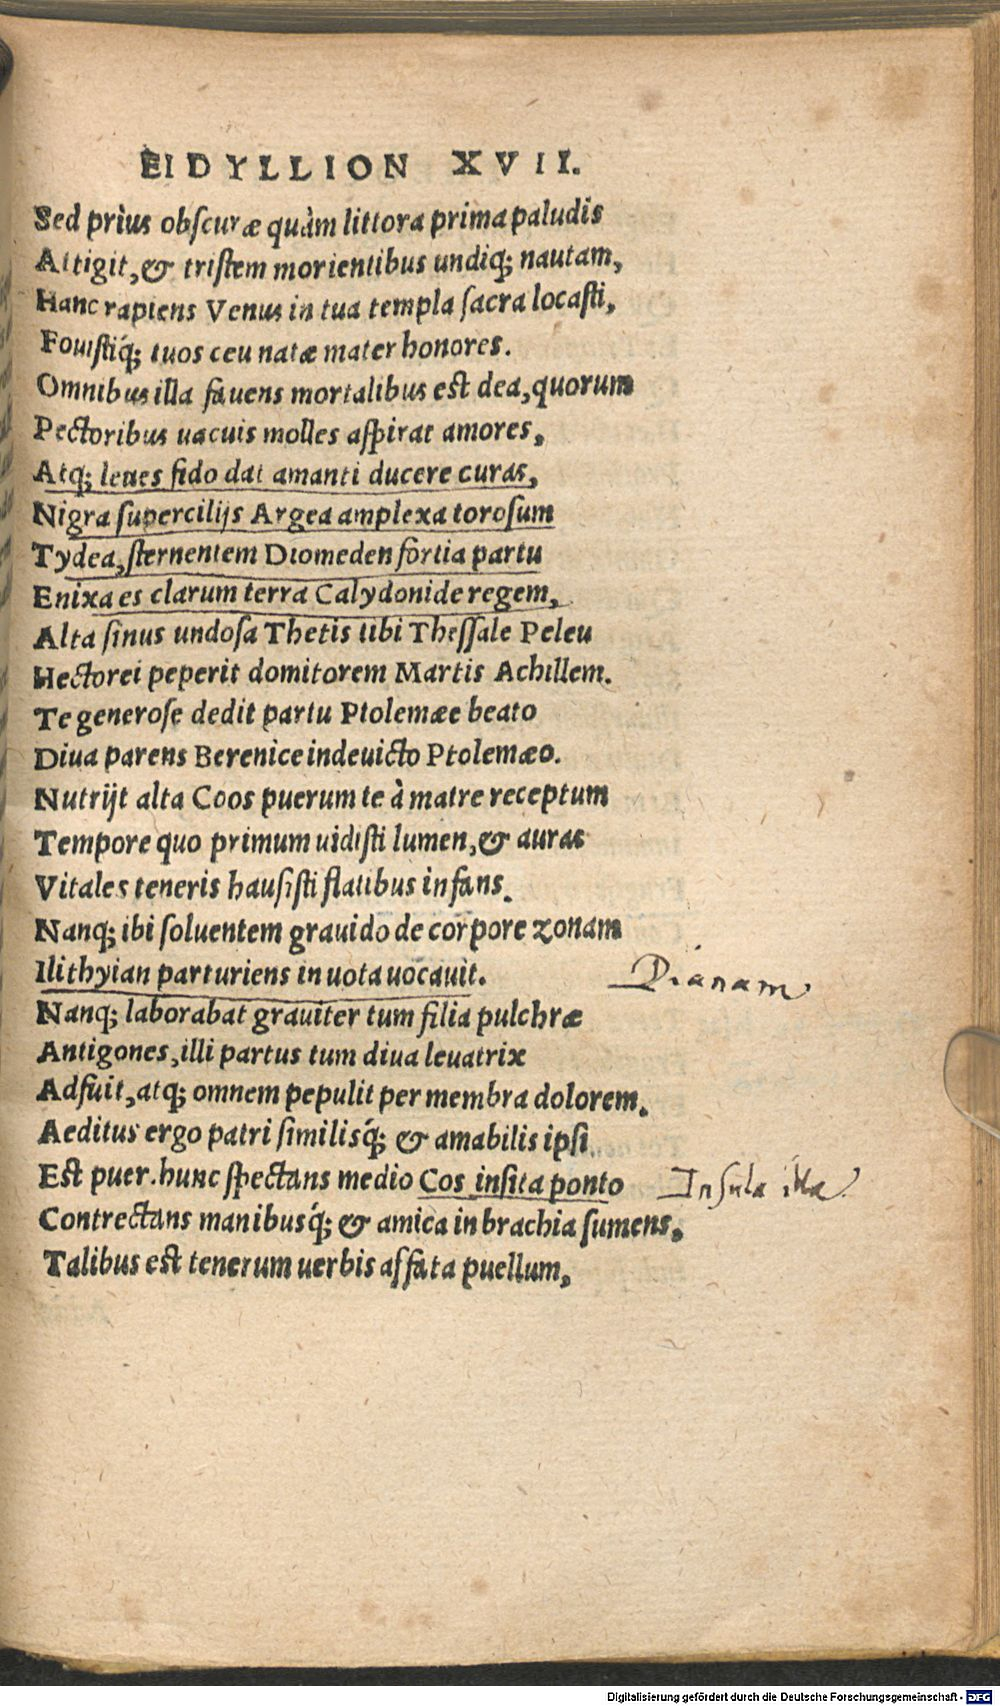 EIDYLLION XVII.
Sed prìus obscuræ quàm littora prima paludis
Attigit, & tristem morientibus undiq; nautam,
Hanc rapiens Venus in tua templa sacra locasti,
Fouistiq́; tuos ceu natæ mater honores.
Omnibus illa fauens mortalibus est dea, quorum
Pectoribus uacuis molles aspirat amores,
Atq; leues fido dat amanti ducere curas,
Nigra supercilijs Argea amplexa torosum
Tydea, sternentem Diomeden fortia partu
Enixa es clarum terra Calydonide regem,
Alta sinus undosa Thetis tibi Thessale Peleu
Hectorei peperit domitorem Martis Achillem.
Te generose dedit partu Ptolemæe beato
Diua parens Berenice indeuicto Ptolemæo.
Nutrijt alta Coos puerum te à matre receptum
Tempore quo primum uidisti lumen, & auras
Vitales teneris hausisti flatibus infans.
Nanq; ibi soluentem grauido de corpore zonam
Ilithyian parturiens in uota uocauit. Dianam
Nanq; laborabat grauiter tum filia pulchræ
Antigones, illi partus tum diua leuatrix
Adfuit, atq; omnem pepulit per membra dolorem.
Aeditus ergo patri similisq́; & amabilis ipsi
Est puer. hunc spectans medio Cos insita ponto Insula illa
Contrectans manibusq́; & amica in brachia sumens,
Talibus est tenerum uerbis affata puellum,
Digitalisierung gefördert durch die Deutsche Forschungsgemeinschaft - DFG